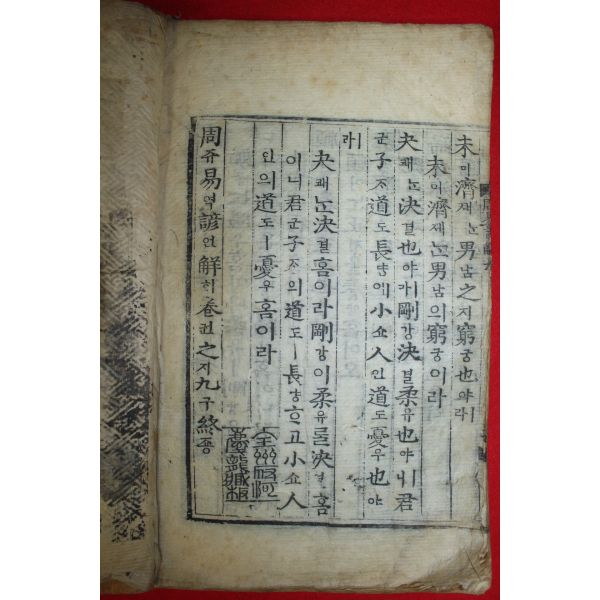 未미濟졔ᄂᆞᆫ男남之지窮궁也야ㅣ라
未미濟졔ᄂᆞᆫ男남의窮궁이라
夬쾌ᄂᆞᆫ決결也야ㅣ라剛강決결柔유也야ㅣ니君
군子ᄌᆞ道도長댱小쇼人인道도憂우也야
ㅣ라
夬쾌ᄂᆞᆫ決결홈이라剛강이柔유ᄅᆞᆯ決결홈
이니君군子ᄌᆞ의道도ㅣ長댱ᄒᆞ고小쇼人
인의道도ㅣ憂우홈이라
周쥬易역諺언解ᄒᆡ卷권之지九구終죵
全州府河
慶龍藏板